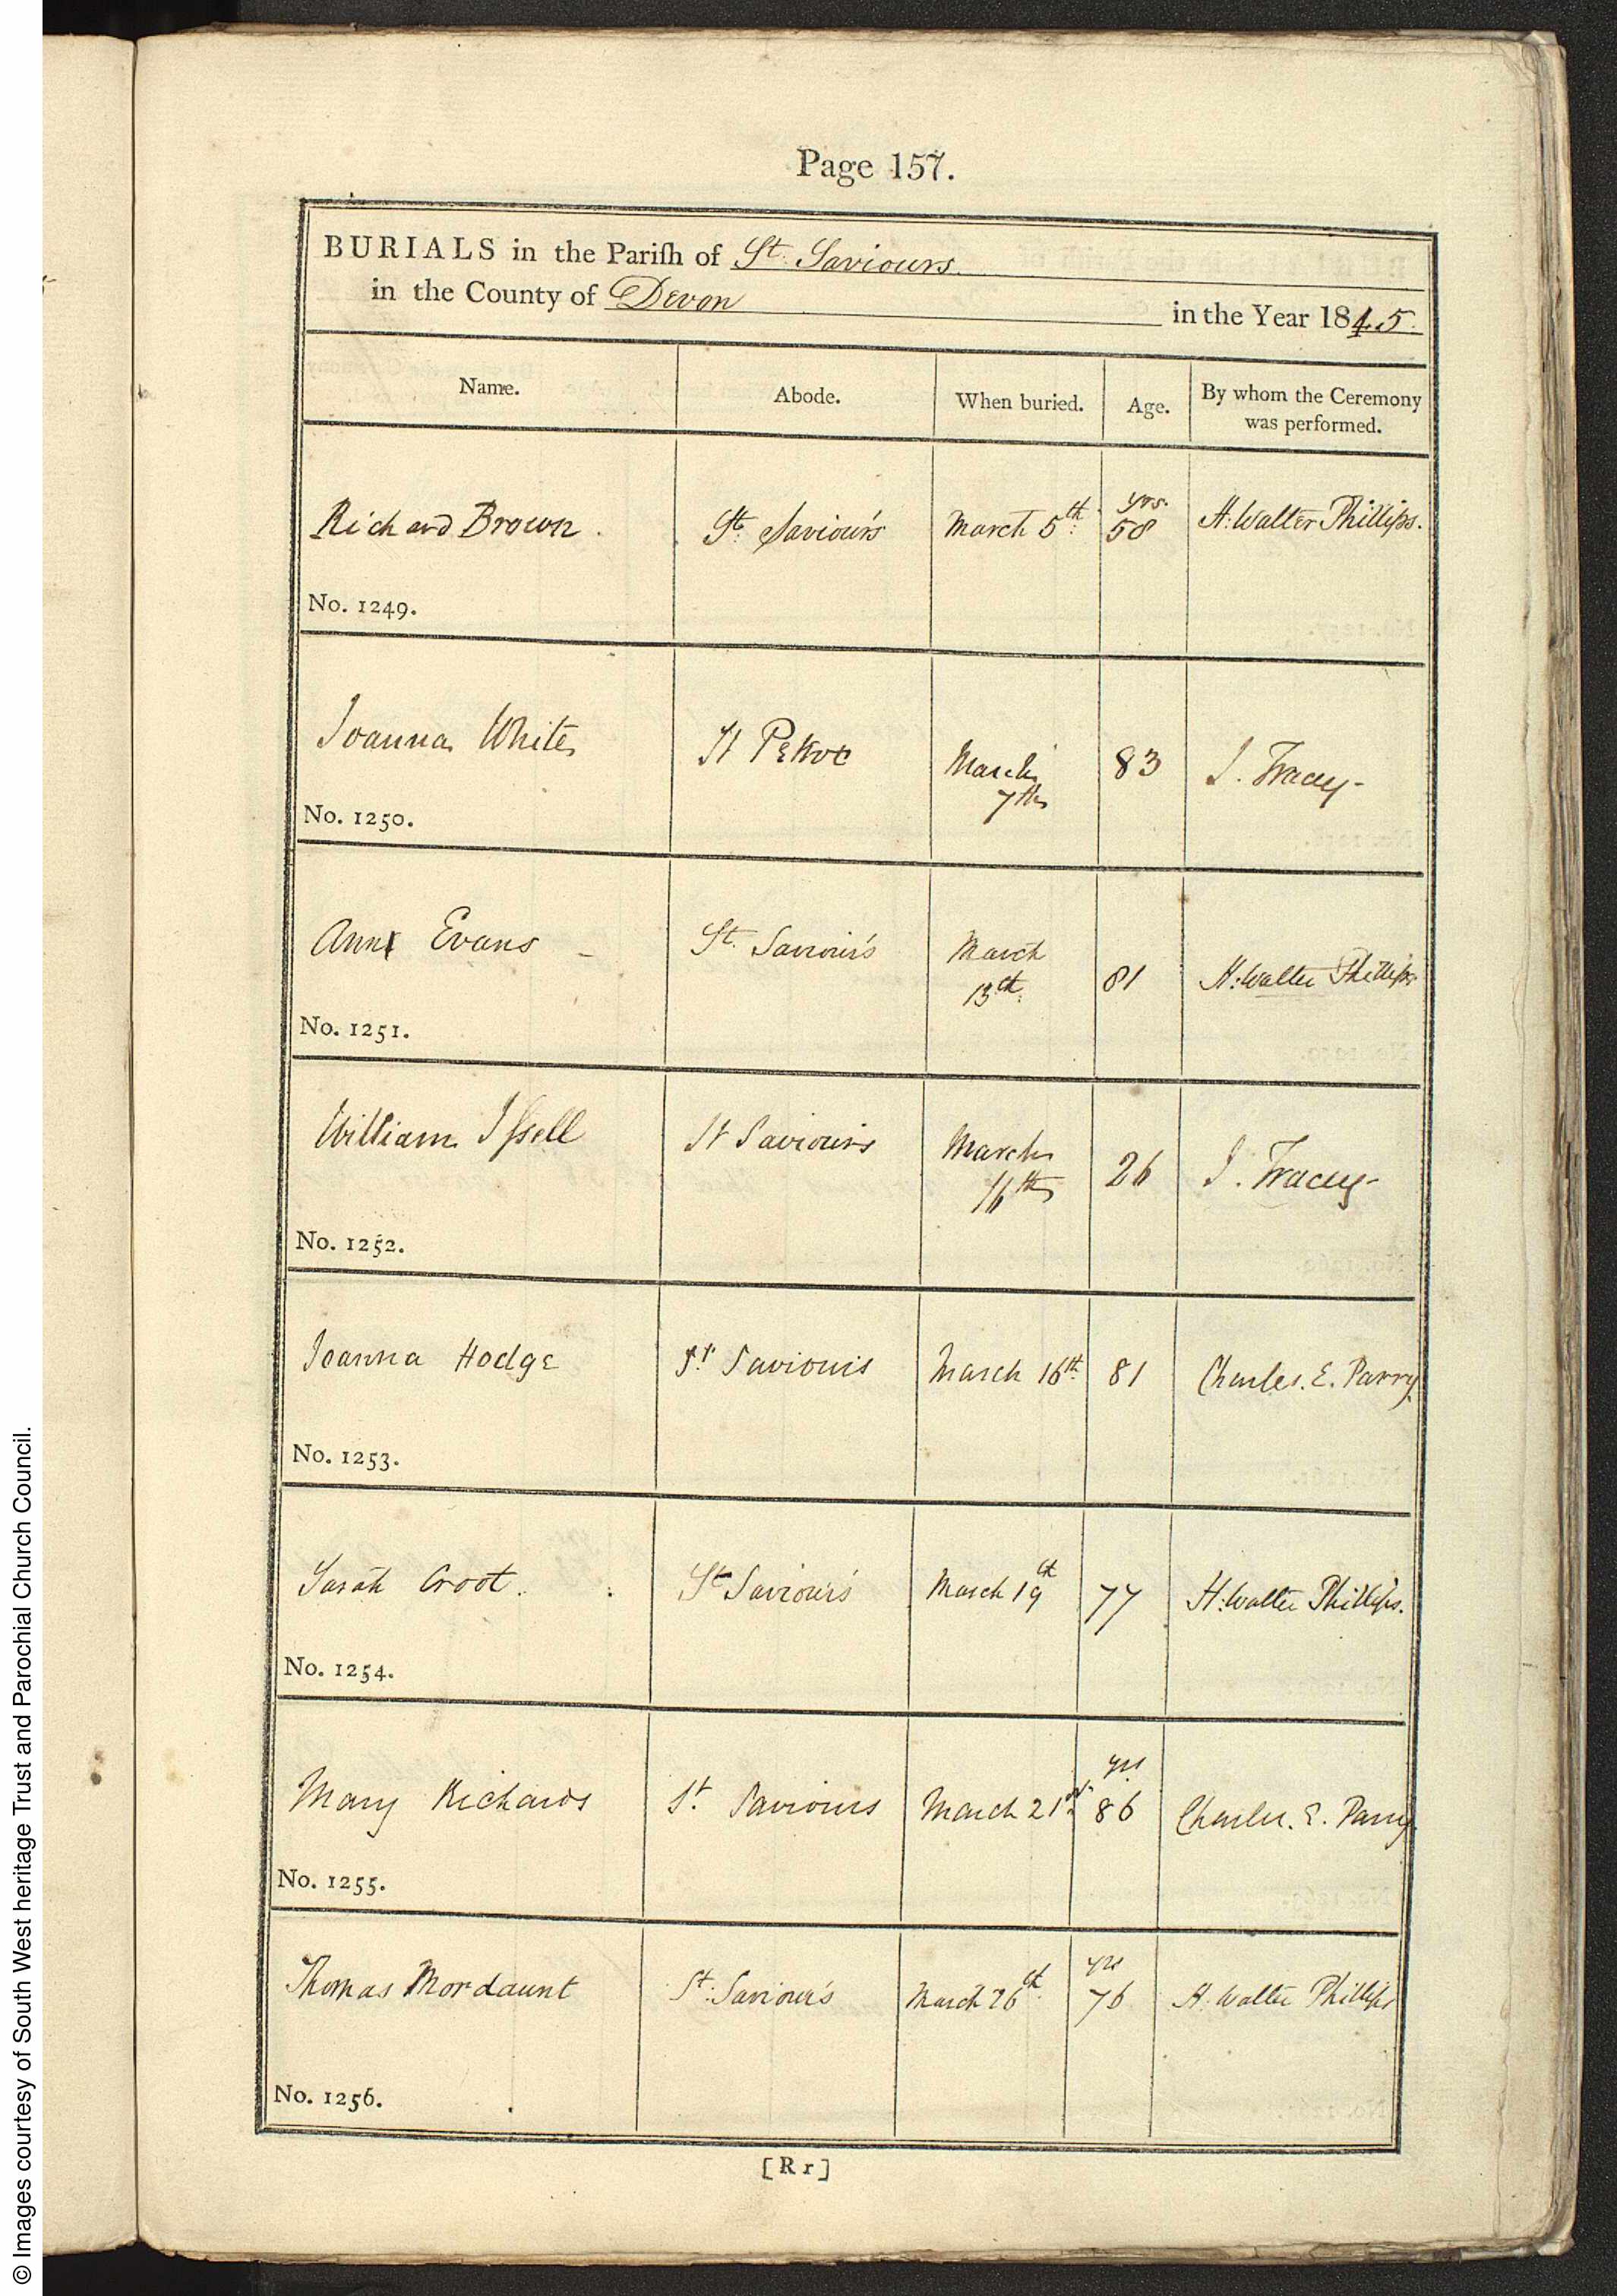 Page 157.
BURIALS in the Pariſh of St. Saviours
in the County of Devon in the Year 1845.
Name. Abode. When buried. Age. By whom the Ceremony was performed.
Richard Brown. St. Saviour's March 5th. yrs. 58 H. Walter Phillips.
No. 1249.
Joanna White St Petrox March 7th 83 J. Tracey -
No. 1250.
Ann Evans - St. Saviour's March 13th. 81 H. Walter Phillips
No. 1251.
William Iſsell St Saviours March 16th 26 J. Tracey -
No. 1252.
Joanna Hodge St. Saviours March 16th. 81 Charles. E. Parry
No. 1253.
Sarah Croot. St Saviour's March 19th 77 H. Walter Phillips.
No. 1254.
Mary Richards St. Saviours March 21 yrs 86 Charles. E. Parry
No. 1255.
Thomas Mordaunt St. Saviour's March 26th yrs 76 H. Walter Phillips
No. 1256.
[R r]
© Images courtesy of South West heritage Trust and Parochial Church Council.